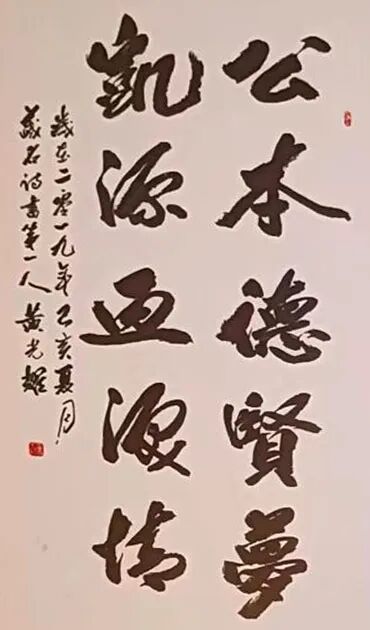 公本德賢夢
凱源血淚情
歲在二零一九年乙亥夏月
藏名詩書第一人 黄光耀